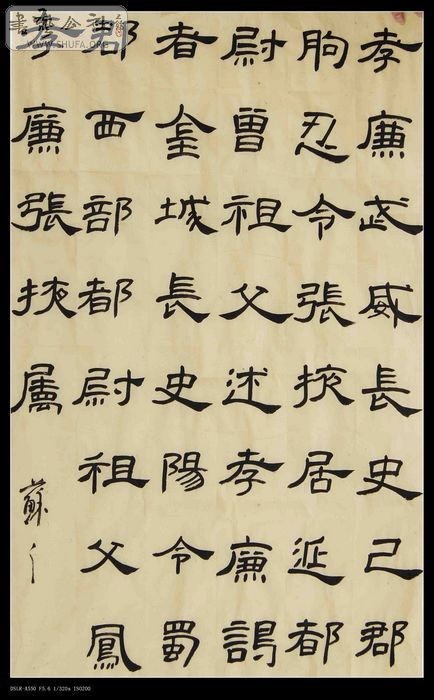 孝廉武威長史己郡
朐忍令張掖居延都
尉曾祖父述孝廉謁
者金城長史陽令蜀
郡西部都尉祖父鳳
孝廉張掖屬
蘇
WWW.SHUFA.ORG
DSLR-A550 F5.6 1/320s ISO200